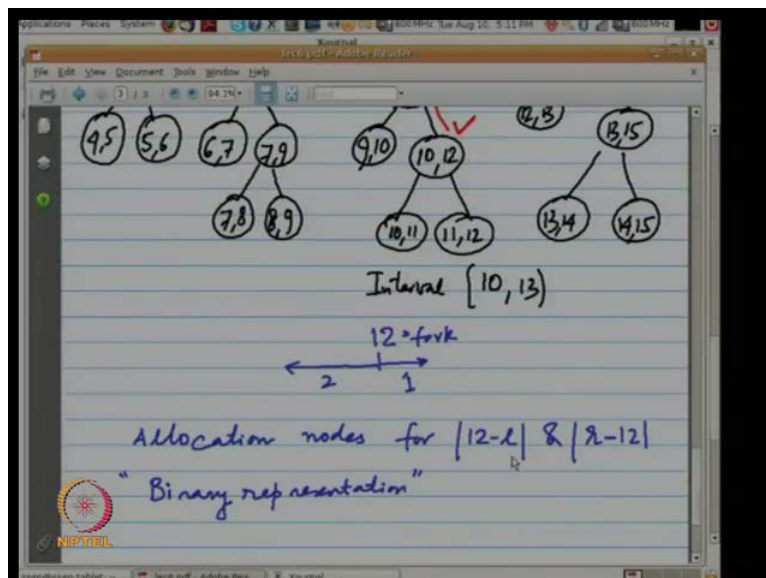 Applications Places System 800 MHz Tue Aug 10, 5:11 PM 800 MHz
Xournal
lec6.pdf - Adobe Reader
File Edit View Document Tools Window Help
3 / 3 84.1%
4,5 5,6 6,7 7,9 9,10 10,12 12,13 13,15
7,8 8,9 10,11 11,12 13,14 14,15
Interval [10, 13)
12 = fork
2 1
Allocation nodes for |12-l| & |r-12|
"Binary representation"
NPTEL